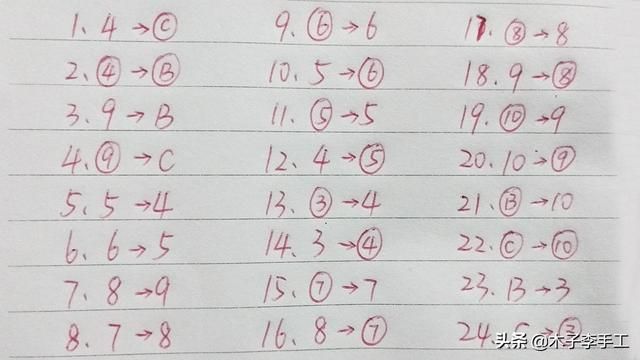 1. 4→Ⓒ
2. ④→Ⓑ
3. 9→B
4. ⑨→C
5. 5→4
6. 6→5
7. 8→9
8. 7→8
9. ⑥→6
10. 5→⑥
11. ⑤→5
12. 4→⑤
13. ③→4
14. 3→④
15. ⑦→7
16. 8→⑦
17. ⑧→8
18. 9→⑧
19. ⑩→9
20. 10→⑨
21. Ⓑ→10
22. Ⓒ→⑩
23. B→3
24. →③
头条 @木子李手工